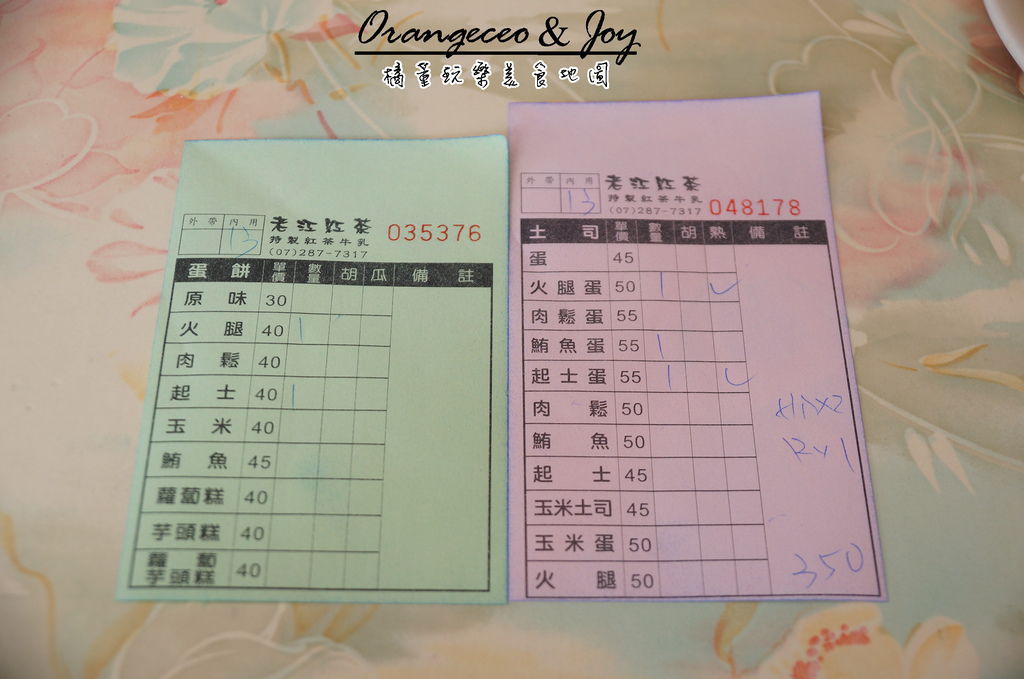 Orangeceo & Joy
橘童玩樂美食地圖
外帶 內用
13
老江紅茶
特製紅茶牛乳
(07)287-7317
035376
蛋餅 單價 數量 胡 瓜 備註
原味 30
火腿 40 1
肉鬆 40
起士 40 1
玉米 40
鮪魚 45
蘿蔔糕 40
芋頭糕 40
蘿蔔芋頭糕 40
外帶 內用
13
老江紅茶
特製紅茶牛乳
(07)287-7317
048178
土司 單價 數量 胡 熱 備註
蛋 45
火腿蛋 50 1 ✓
肉鬆蛋 55
鮪魚蛋 55 1
起士蛋 55 1 ✓
肉鬆 50
鮪魚 50
起士 45
玉米土司 45
玉米蛋 50
火腿 50
350